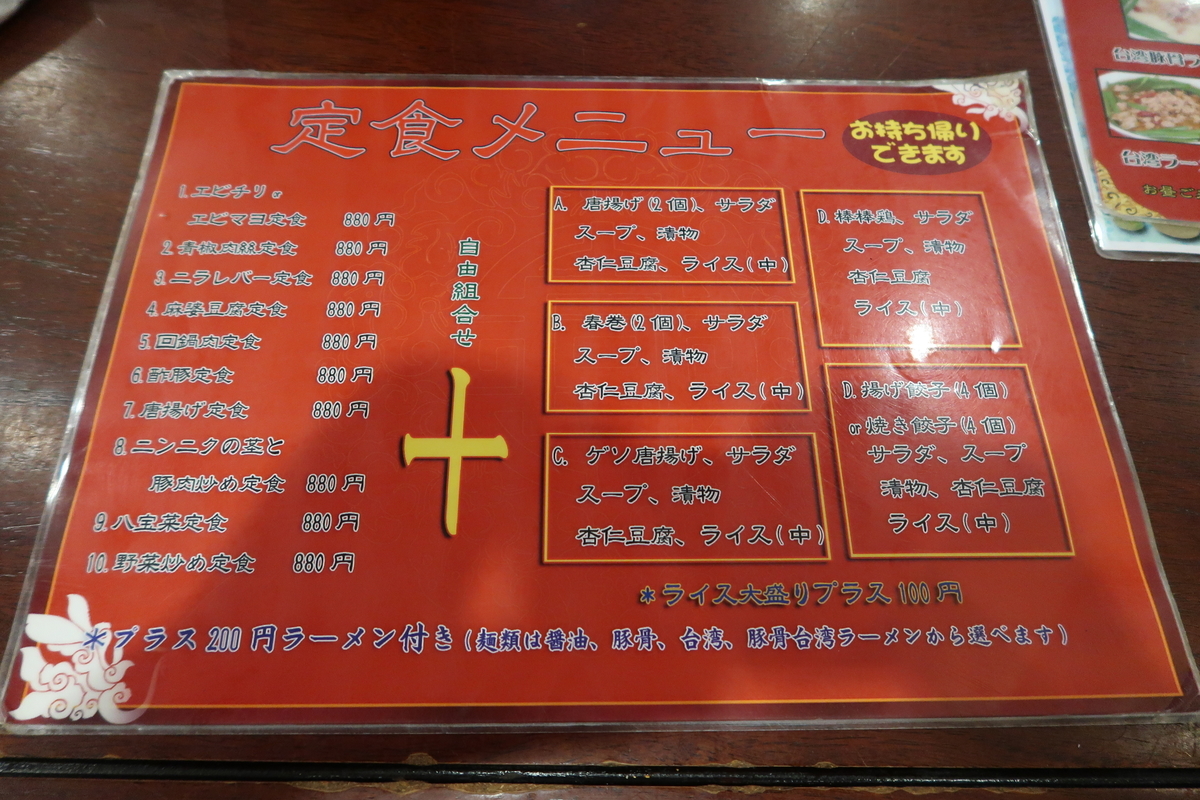 定食メニュー
お持ち帰り
できます
1. エビチリor
エビマヨ定食 880円
2. 青椒肉絲定食 880円
3. ニラレバー定食 880円
4. 麻婆豆腐定食 880円
5. 回鍋肉定食 880円
6. 酢豚定食 880円
7. 唐揚げ定食 880円
8. ニンニクの茎と
豚肉炒め定食 880円
9. 八宝菜定食 880円
10. 野菜炒め定食 880円
自由組合せ
+
A. 唐揚げ(2個)、サラダ
スープ、漬物
杏仁豆腐、ライス(中)
B. 春巻(2個)、サラダ
スープ、漬物
杏仁豆腐、ライス(中)
C. ゲソ唐揚げ、サラダ
スープ、漬物
杏仁豆腐、ライス(中)
D. 棒棒鶏、サラダ
スープ、漬物
杏仁豆腐
ライス(中)
D. 揚げ餃子(4個)
or焼き餃子(4個)
サラダ、スープ
漬物、杏仁豆腐
ライス(中)
*ライス大盛りプラス100円
*プラス200円ラーメン付き(麺類は醤油、豚骨、台湾、豚骨台湾ラーメンから選べます)
台湾豚骨ラ
台湾ラー
お昼ご